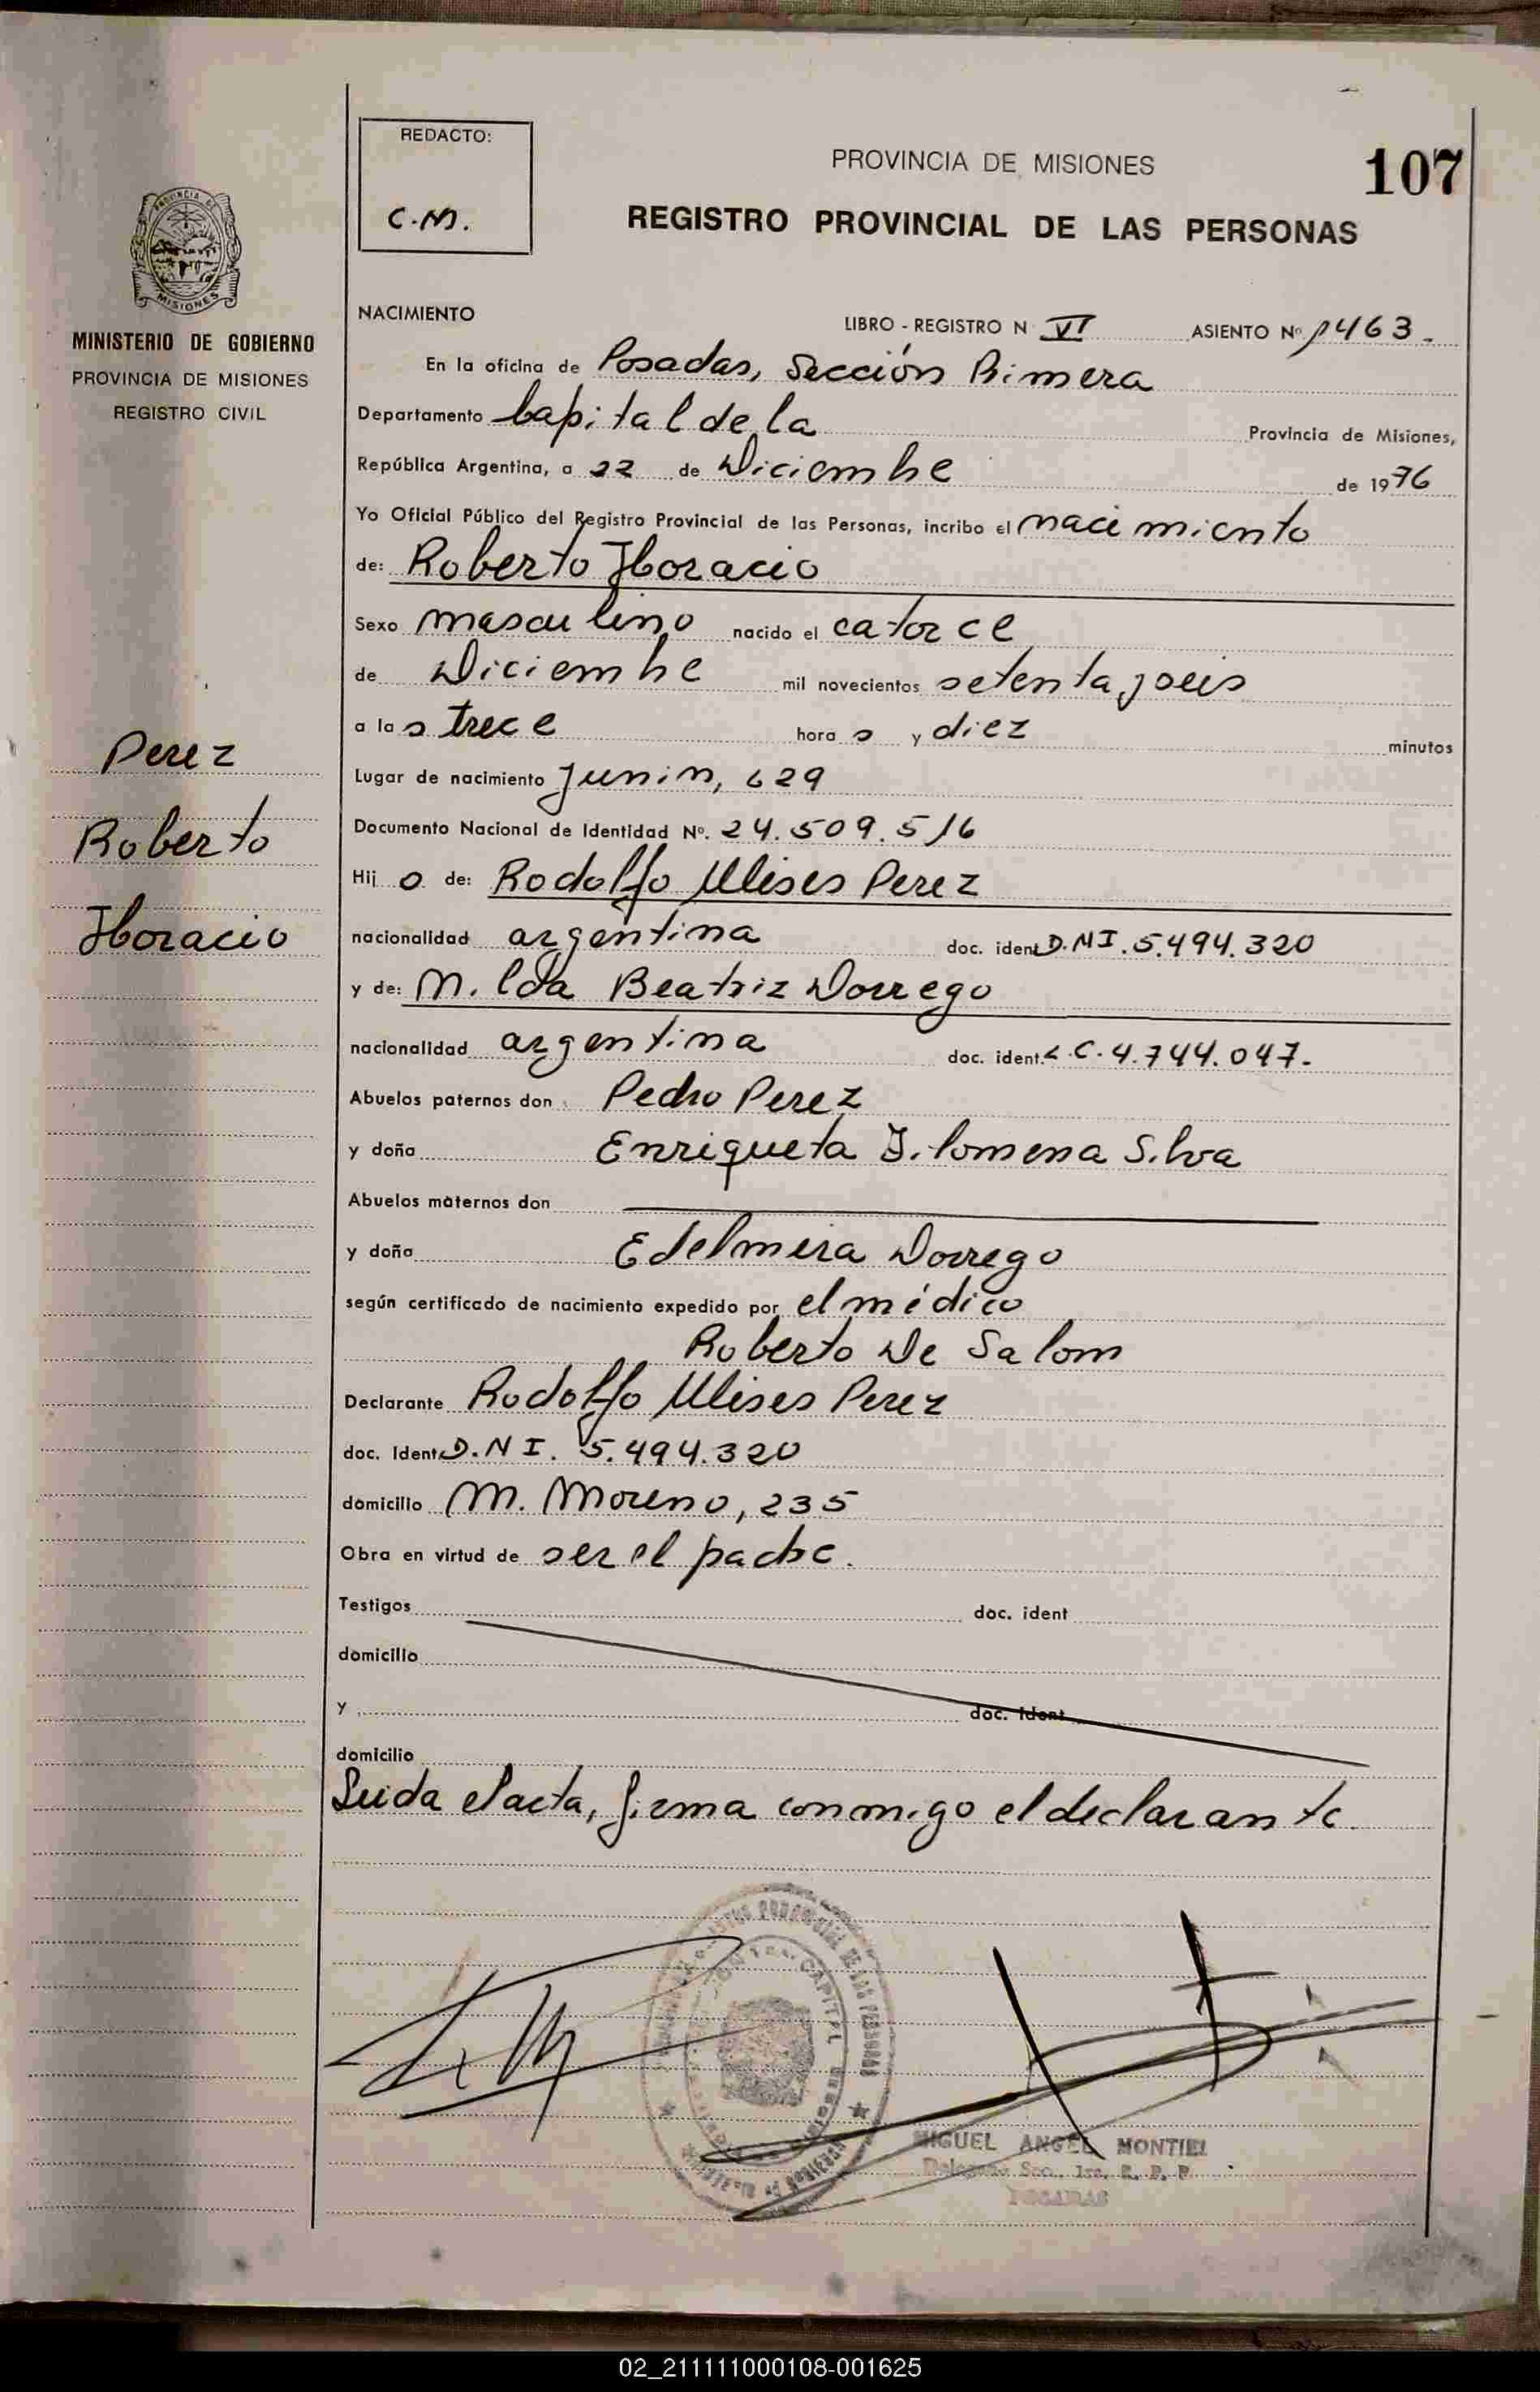 REDACTO:
C.M.
PROVINCIA DE MISIONES
107
REGISTRO PROVINCIAL DE LAS PERSONAS
PROVINCIA DE
MISIONES
MINISTERIO DE GOBIERNO
PROVINCIA DE MISIONES
REGISTRO CIVIL
NACIMIENTO
LIBRO - REGISTRO N VI ASIENTO Nº 1463.
En la oficina de Posadas, Sección Primera
Departamento Capital de la Provincia de Misiones,
República Argentina, a 22 de Diciembre de 1976
Yo Oficial Público del Registro Provincial de las Personas, incribo el nacimiento
de: Roberto Horacio
Sexo masculino nacido el catorce
de Diciembre mil novecientos setenta y seis
a las trece horas y diez minutos
Perez
Roberto
Horacio
Lugar de nacimiento Junin, 629
Documento Nacional de Identidad Nº. 24.509.516
Hijo de: Rodolfo Ulises Perez
nacionalidad argentina doc. ident D.NI. 5.494.320
y de: Milda Beatriz Dorrego
nacionalidad argentina doc. ident. L.C. 4.744.047.-
Abuelos paternos don Pedro Perez
y doña Enriqueta Filomena Silva
Abuelos maternos don
y doña Edelmira Dorrego
según certificado de nacimiento expedido por el médico
Roberto De Salom
Declarante Rodolfo Ulises Perez
doc. Ident. D.N I. 5.494.320
domicilio M. Moreno, 235
Obra en virtud de ser el padre.
Testigos doc. ident
domicilio
y doc. ident
domicilio
Leida el acta, firma conmigo el declarante.
MIGUEL ANGEL MONTIEL
Delegado Sec. 1ra. R. P. P.
POSADAS
02_211111000108-001625